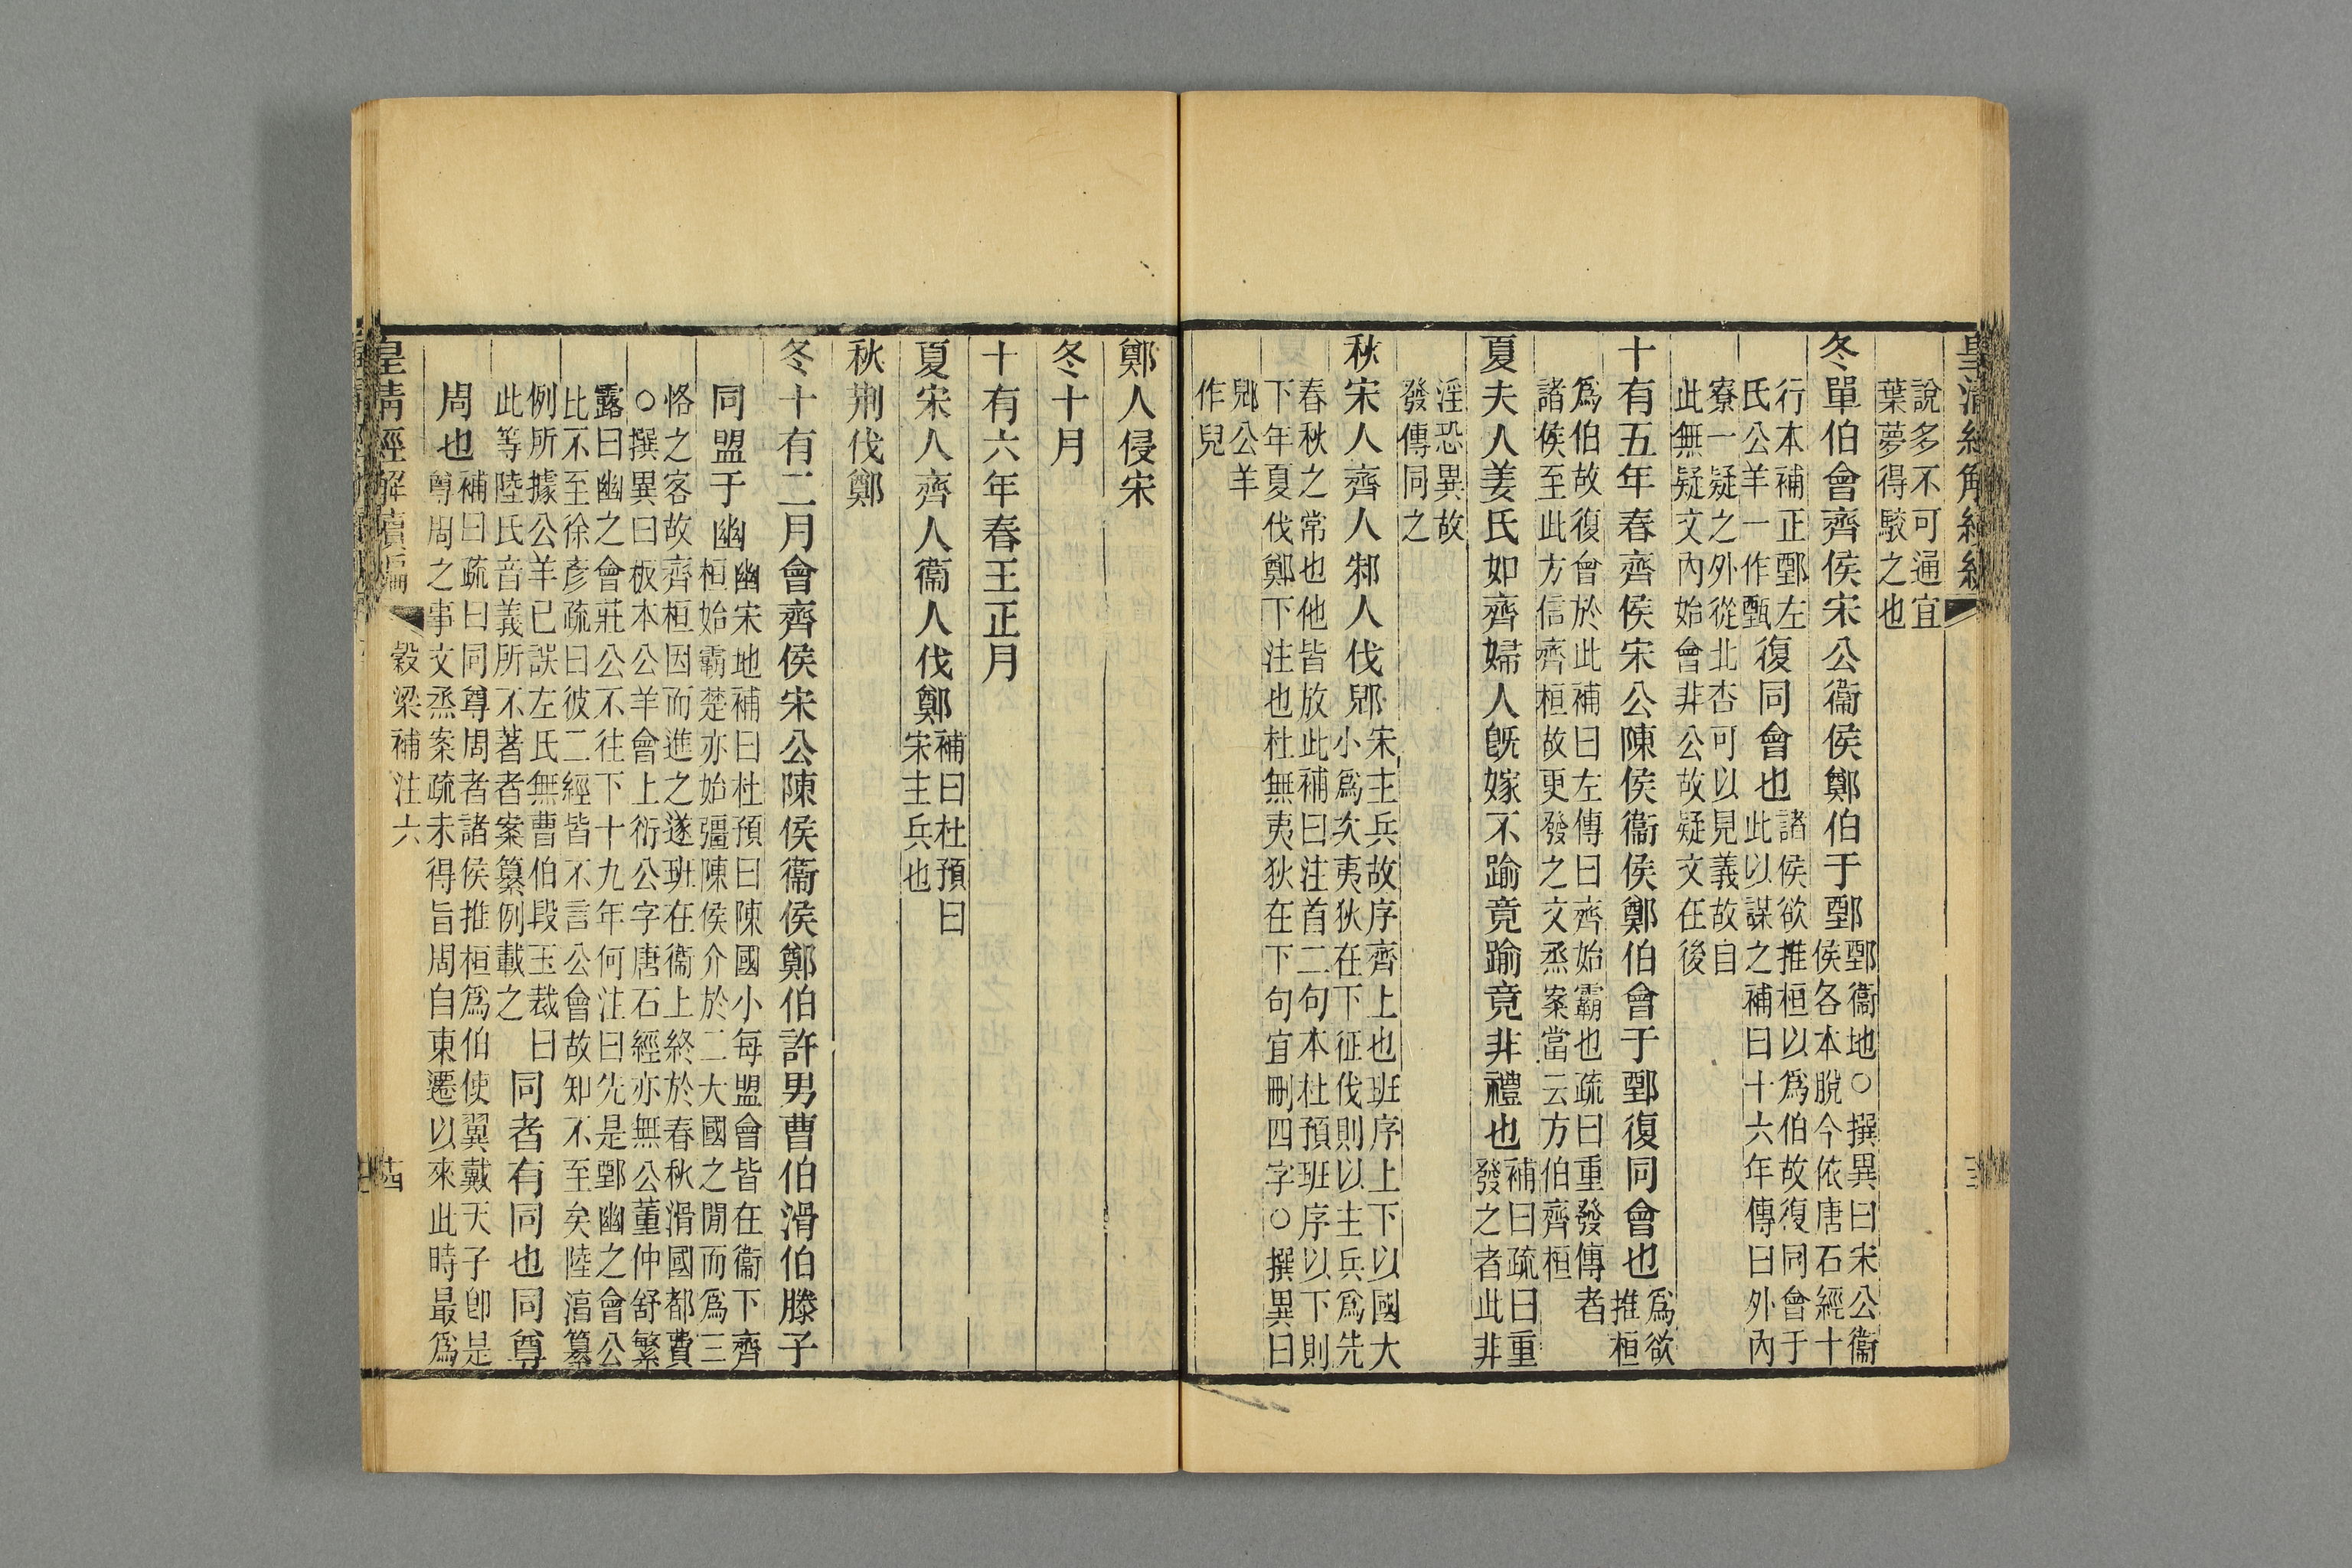 皇清經解續編
說多不可通宜
葉夢得駁之也
冬單伯會齊侯宋公衞侯鄭伯于鄄
鄄衞地○撰異曰宋公衞
侯各本脫今依唐石經十
行本補正鄄左
氏公羊一作甄
復同會也
諸侯欲推桓以爲伯故復同會于
此以謀之補曰十六年傳曰外內
寮一疑之外從北杏可以見義故自
此無疑文內始會非公故疑文在後
十有五年春齊侯宋公陳侯衞侯鄭伯會于鄄復同會也
爲欲
推桓
爲伯故復會於此補曰左傳曰齊始霸也疏曰重發傳者
諸侯至此方信齊桓故更發之文烝案當云方伯齊桓
夏夫人姜氏如齊婦人旣嫁不踰竟踰竟非禮也
補曰疏曰重
發之者此非
淫恐異故
發傳同之
秋宋人齊人邾人伐郳
宋主兵故序齊上也班序上下以國大
小爲次夷狄在下征伐則以主兵爲先
春秋之常也他皆放此補曰注首二句本杜預班序以下則
下年夏伐鄭下注也杜無夷狄在下句宜刪四字○撰異曰
郳公羊
作兒
鄭人侵宋
冬十月
十有六年春王正月
夏宋人齊人衞人伐鄭
補曰杜預曰
宋主兵也
秋荆伐鄭
冬十有二月會齊侯宋公陳侯衞侯鄭伯許男曹伯滑伯滕子
同盟于幽
幽宋地補曰杜預曰陳國小每盟會皆在衞下齊
桓始霸楚亦始彊陳侯介於二大國之閒而爲三
恪之客故齊桓因而進之遂班在衞上終於春秋滑國都費
○撰異曰板本公羊會上衍公字唐石經亦無公董仲舒繁
露曰幽之會莊公不往下十九年何注曰先是鄄幽之會公
比不至徐彥疏曰彼二經皆不言公會故知不至矣陸淳纂
例所據公羊已誤左氏無曹伯段玉裁曰
此等陸氏音義所不著者案纂例載之
同者有同也同尊
周也
補曰疏曰同尊周者諸侯推桓爲伯使翼戴天子卽是
尊周之事文烝案疏未得旨周自東遷以來此時最爲
皇清經解續編
穀梁補注六